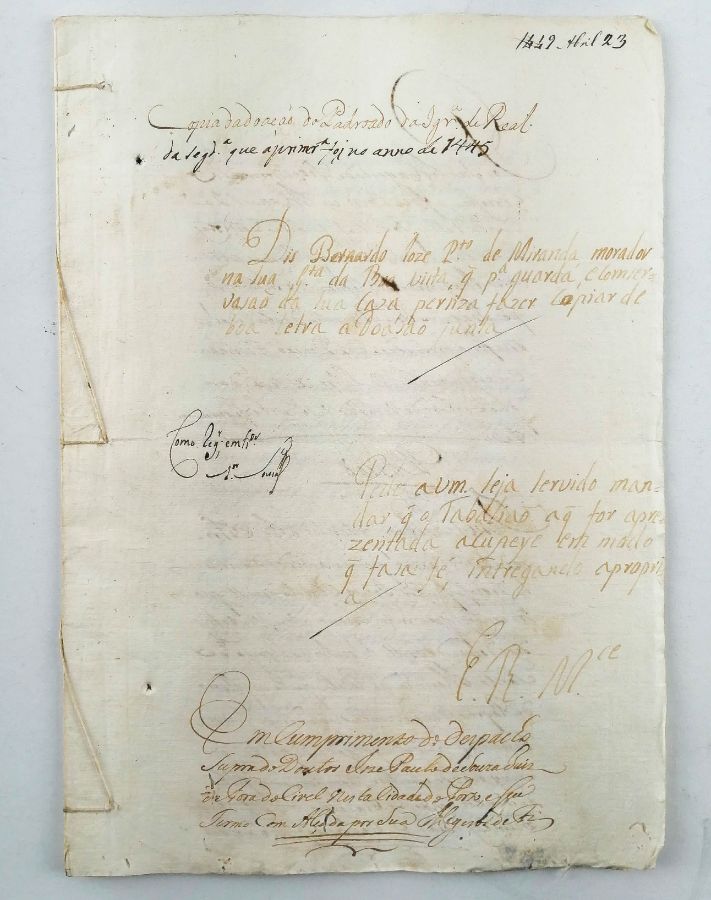 1449 Abril 23
Copia da doação do Padroado da Igrª. de Real.
da segdª. que a primrª. foi no anno de 1445
Dis Bernardo Joze Pto. de Miranda morador
na sua qta. da Boa vista, q̃ pª guarda, e comser-
vasaõ da sua Caza perisza fazer Copiar de
boa letra a Doasaõ junta
Como
Pede a vm. seja servido man-
dar q̃ o Tabaliaõ a q̃ for apre-
zentada a copeye em modo
q̃ fasa fé, Entregando a propri-
a
E. R. M.ce
Em Cumprimento do despacho
Supra do Doutor Joze Paulo de Souza Juiz
de Fora do Civel nesta Cidade do Porto, e seu
Termo Com Alçada por Sua Magestade Fi